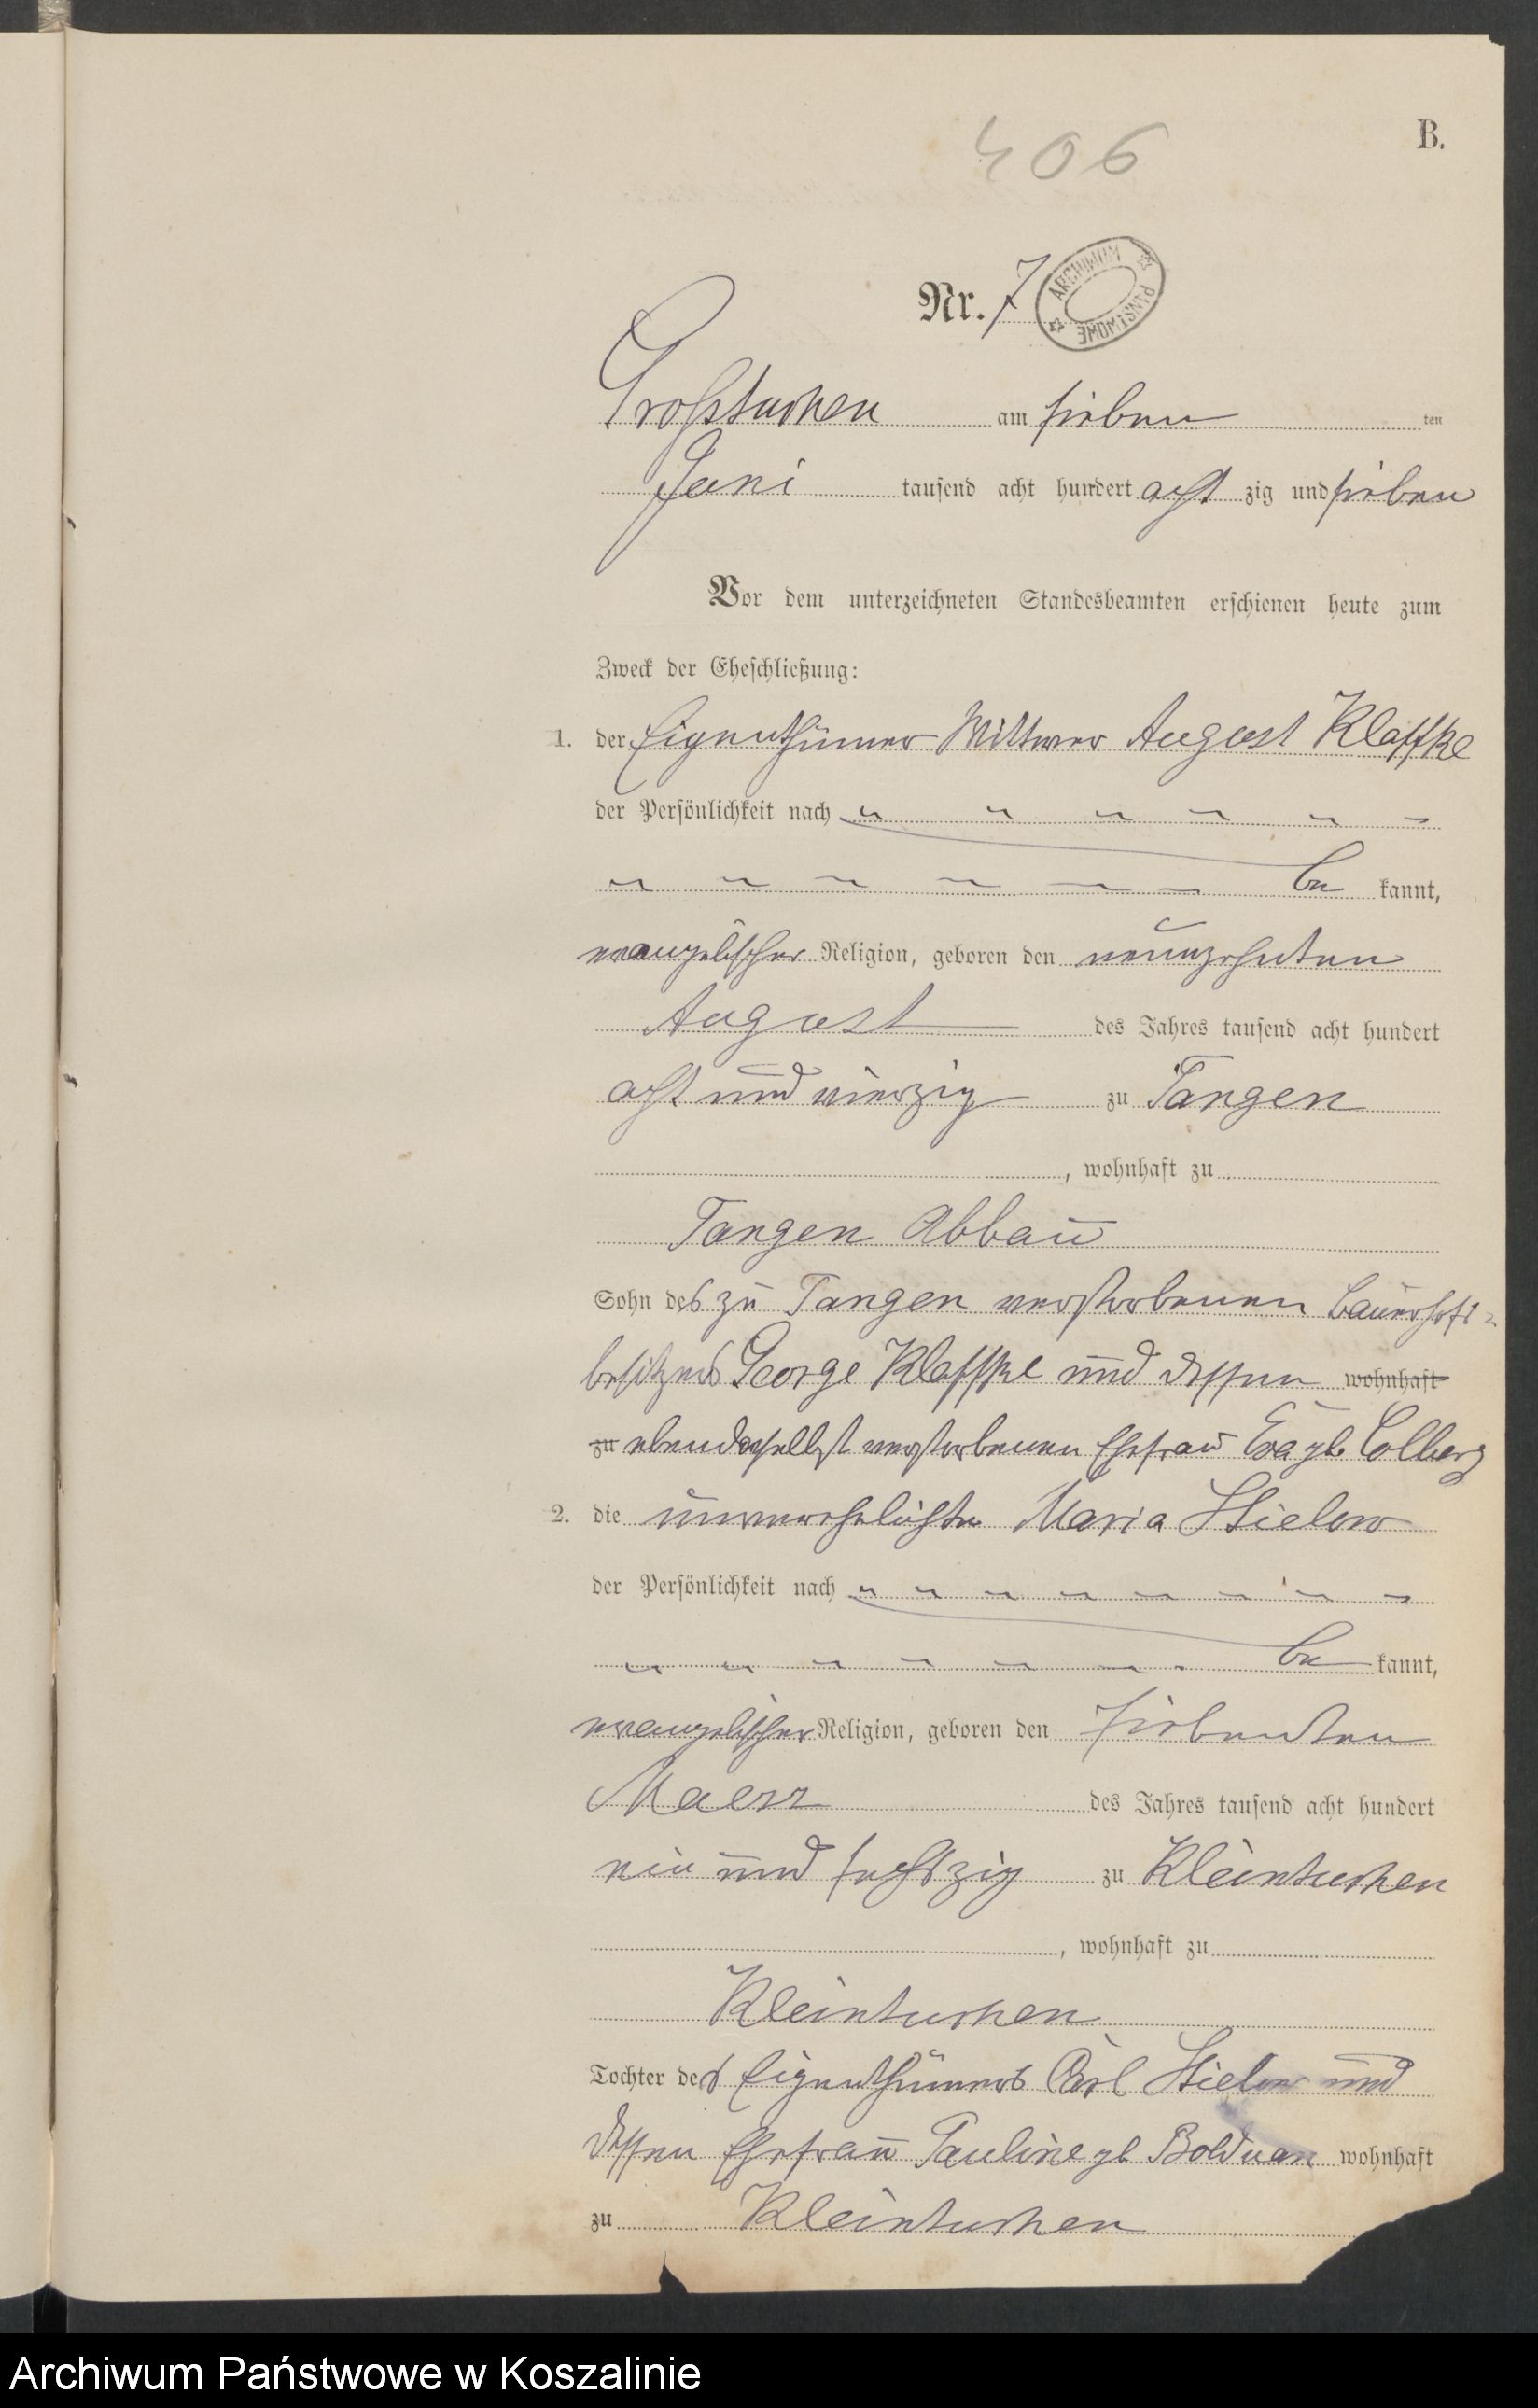 406
B.
Nr. 7
ARCHIWUM PAŃSTWOWE
Großtuchen am sieben ten
Juni tausend acht hundert acht zig und sieben
Vor dem unterzeichneten Standesbeamten erschienen heute zum
Zweck der Eheschließung:
1. der Eigenthümer Wittwer August Klaffke
der Persönlichkeit nach
be kannt,
evangelischer Religion, geboren den neunzehnten
August des Jahres tausend acht hundert
acht und vierzig zu Tangen
, wohnhaft zu
Tangen Abbau
Sohn des zu Tangen verstorbenen Bauerhofs-
besitzers George Klaffke und dessen wohnhaft
zu ebendaselbst verstorbenen Ehefrau Eva gb Colberg
2. die unverehelichte Maria Stielow
der Persönlichkeit nach
be kannt,
evangelischer Religion, geboren den siebenten
Maerz des Jahres tausend acht hundert
ein und sechszig zu Kleintuchen
, wohnhaft zu
Kleintuchen
Tochter des Eigenthümers Carl Stielow und
dessen Ehefrau Pauline gb Bolduan wohnhaft
zu Kleintuchen
Archiwum Państwowe w Koszalinie